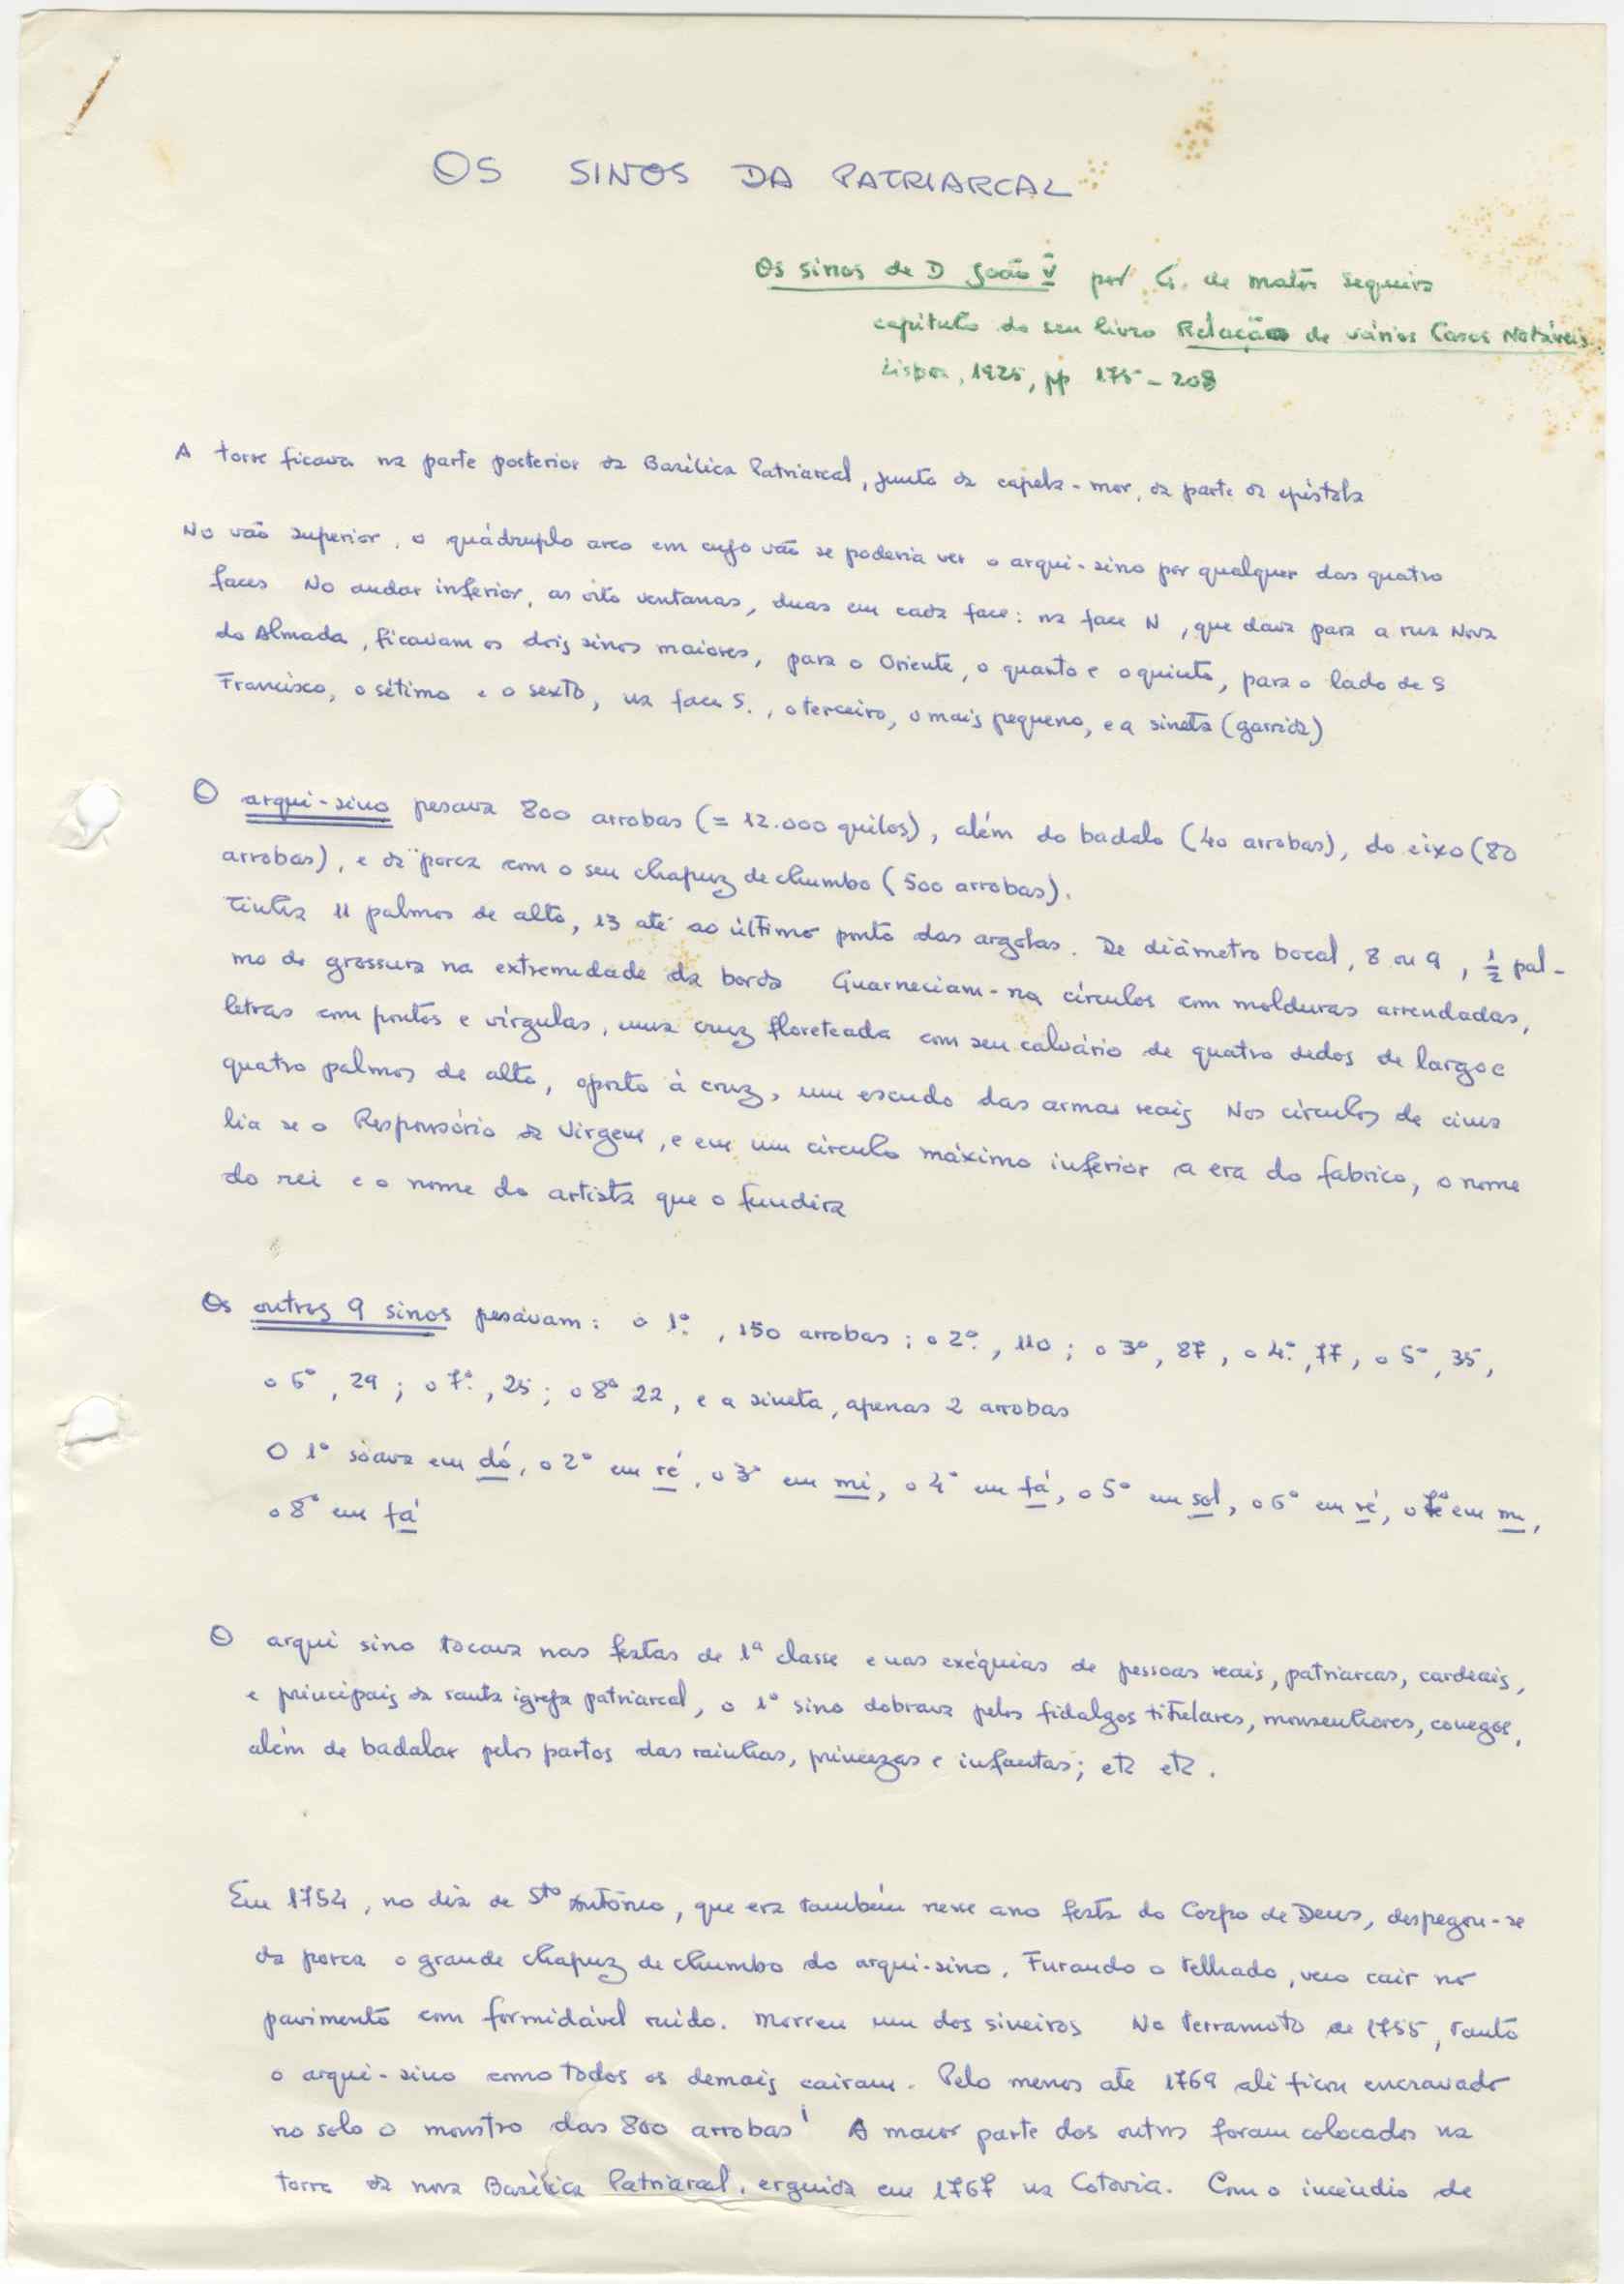 OS SINOS DA PATRIARCAL
Os sinos de D João V por G. de Matos Sequeira
capítulo do seu livro Relação de vários Casos Notáveis.
Lisboa, 1925, pp 175-208
A torre ficava na parte posterior da Basílica Patriarcal, junto da capela-mor, da parte da epístola
No vão superior, o quádruplo arco em cujo vão se poderia ver o arqui-sino por qualquer das quatro
faces No andar inferior, as oito ventanas, duas em cada face: na face N, que dava para a rua Nova
do Almada, ficavam os dois sinos maiores, para o Oriente, o quarto e o quinto, para o lado de S
Francisco, o sétimo e o sexto, na face S., o terceiro, o mais pequeno, e a sineta (garrida)
O arqui-sino pesava 800 arrobas (= 12.000 quilos), além do badalo (40 arrobas), do eixo (80
arrobas), e da porca com o seu chapuz de chumbo (500 arrobas).
Tinha 11 palmos de alto, 13 até ao último ponto das argolas. De diâmetro bocal, 8 ou 9, ½ pal-
mo de grossura na extremidade da borda Guarneciam-no círculos com molduras arrendadas,
letras com pontos e vírgulas, uma cruz floreteada com seu calvário de quatro dedos de largo e
quatro palmos de alto, oposto à cruz, um escudo das armas reais Nos círculos de cima
lia se o Responsório da Virgem, e em um círculo máximo inferior a era do fabrico, o nome
do rei e o nome do artista que o fundira
Os outros 9 sinos pesavam: o 1º., 150 arrobas; o 2º., 110; o 3º, 87, o 4º., 77, o 5º, 35,
o 6º, 29; o 7º., 25; o 8º 22, e a sineta, apenas 2 arrobas
O 1º soava em dó, o 2º em ré, o 3º em mi, o 4º em fá, o 5º em sol, o 6º em ré, o 7º em mi,
o 8º em fá
O arqui sino tocava nas festas de 1ª classe e nas exéquias de pessoas reais, patriarcas, cardeais,
e principais da santa igreja patriarcal, o 1º sino dobrava pelos fidalgos titulares, monsenhores, conegos,
além de badalar pelos partos das rainhas, princezas e infantas; etc etc.
Em 1754, no dia de Stº António, que era também nesse ano festa do Corpo de Deus, despegou-se
da porca o grande chapuz de chumbo do arqui-sino. Furando o telhado, veio cair no
pavimento com formidável ruído. Morreu um dos sineiros No Terramoto de 1755, tanto
o arqui-sino como todos os demais cairam. Pelo menos até 1769 ali ficou encravado
no solo o monstro das 800 arrobas! A maior parte dos outros foram colocados na
torre da nova Basílica Patriarcal, erguida em 1767 na Cotovia. Com o incêndio de